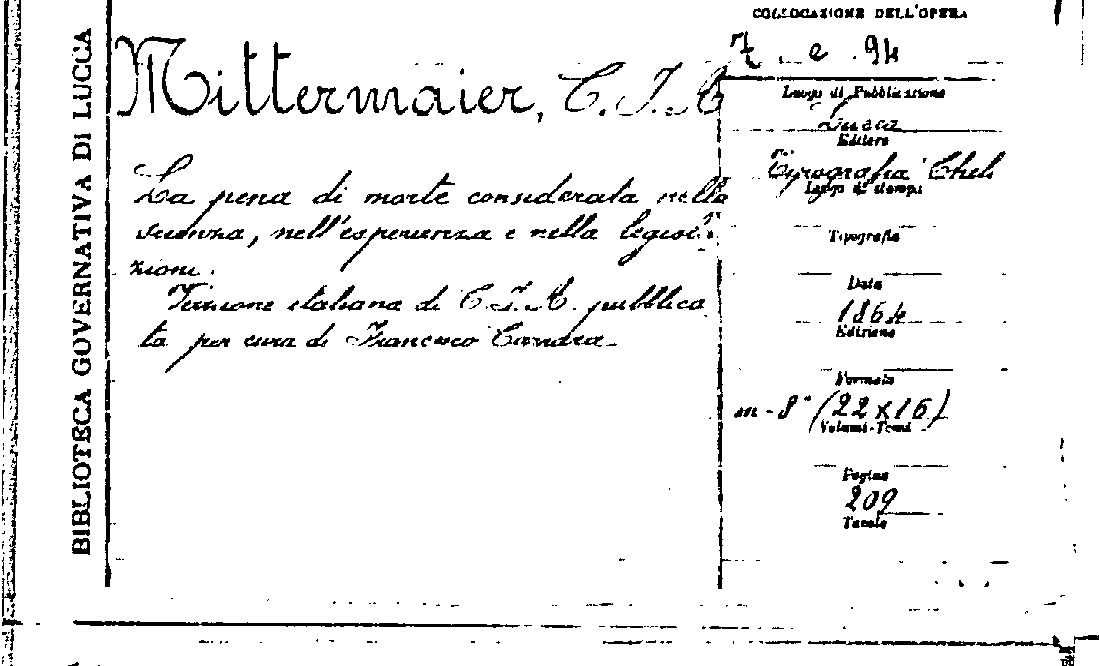 BIBLIOTECA GOVERNATIVA DI LUCCA
Mittermaier, C. I. A.
La pena di morte considerata nella
scienza, nell'esperienza e nelle legisla
zioni.
Versione italiana di C. I. A. pubblica
ta per cura di Francesco
COLLOCAZIONE DELL'OPERA
7. e. 94
Luogo di Pubblicazione
Lucca
Editore
Tipografia Cheli
Luogo di stampa
Tipografia
Data
1864
Edizione
Formato
in-8° (22x16)
Volumi-Tomi
Pagine
209
Tavole